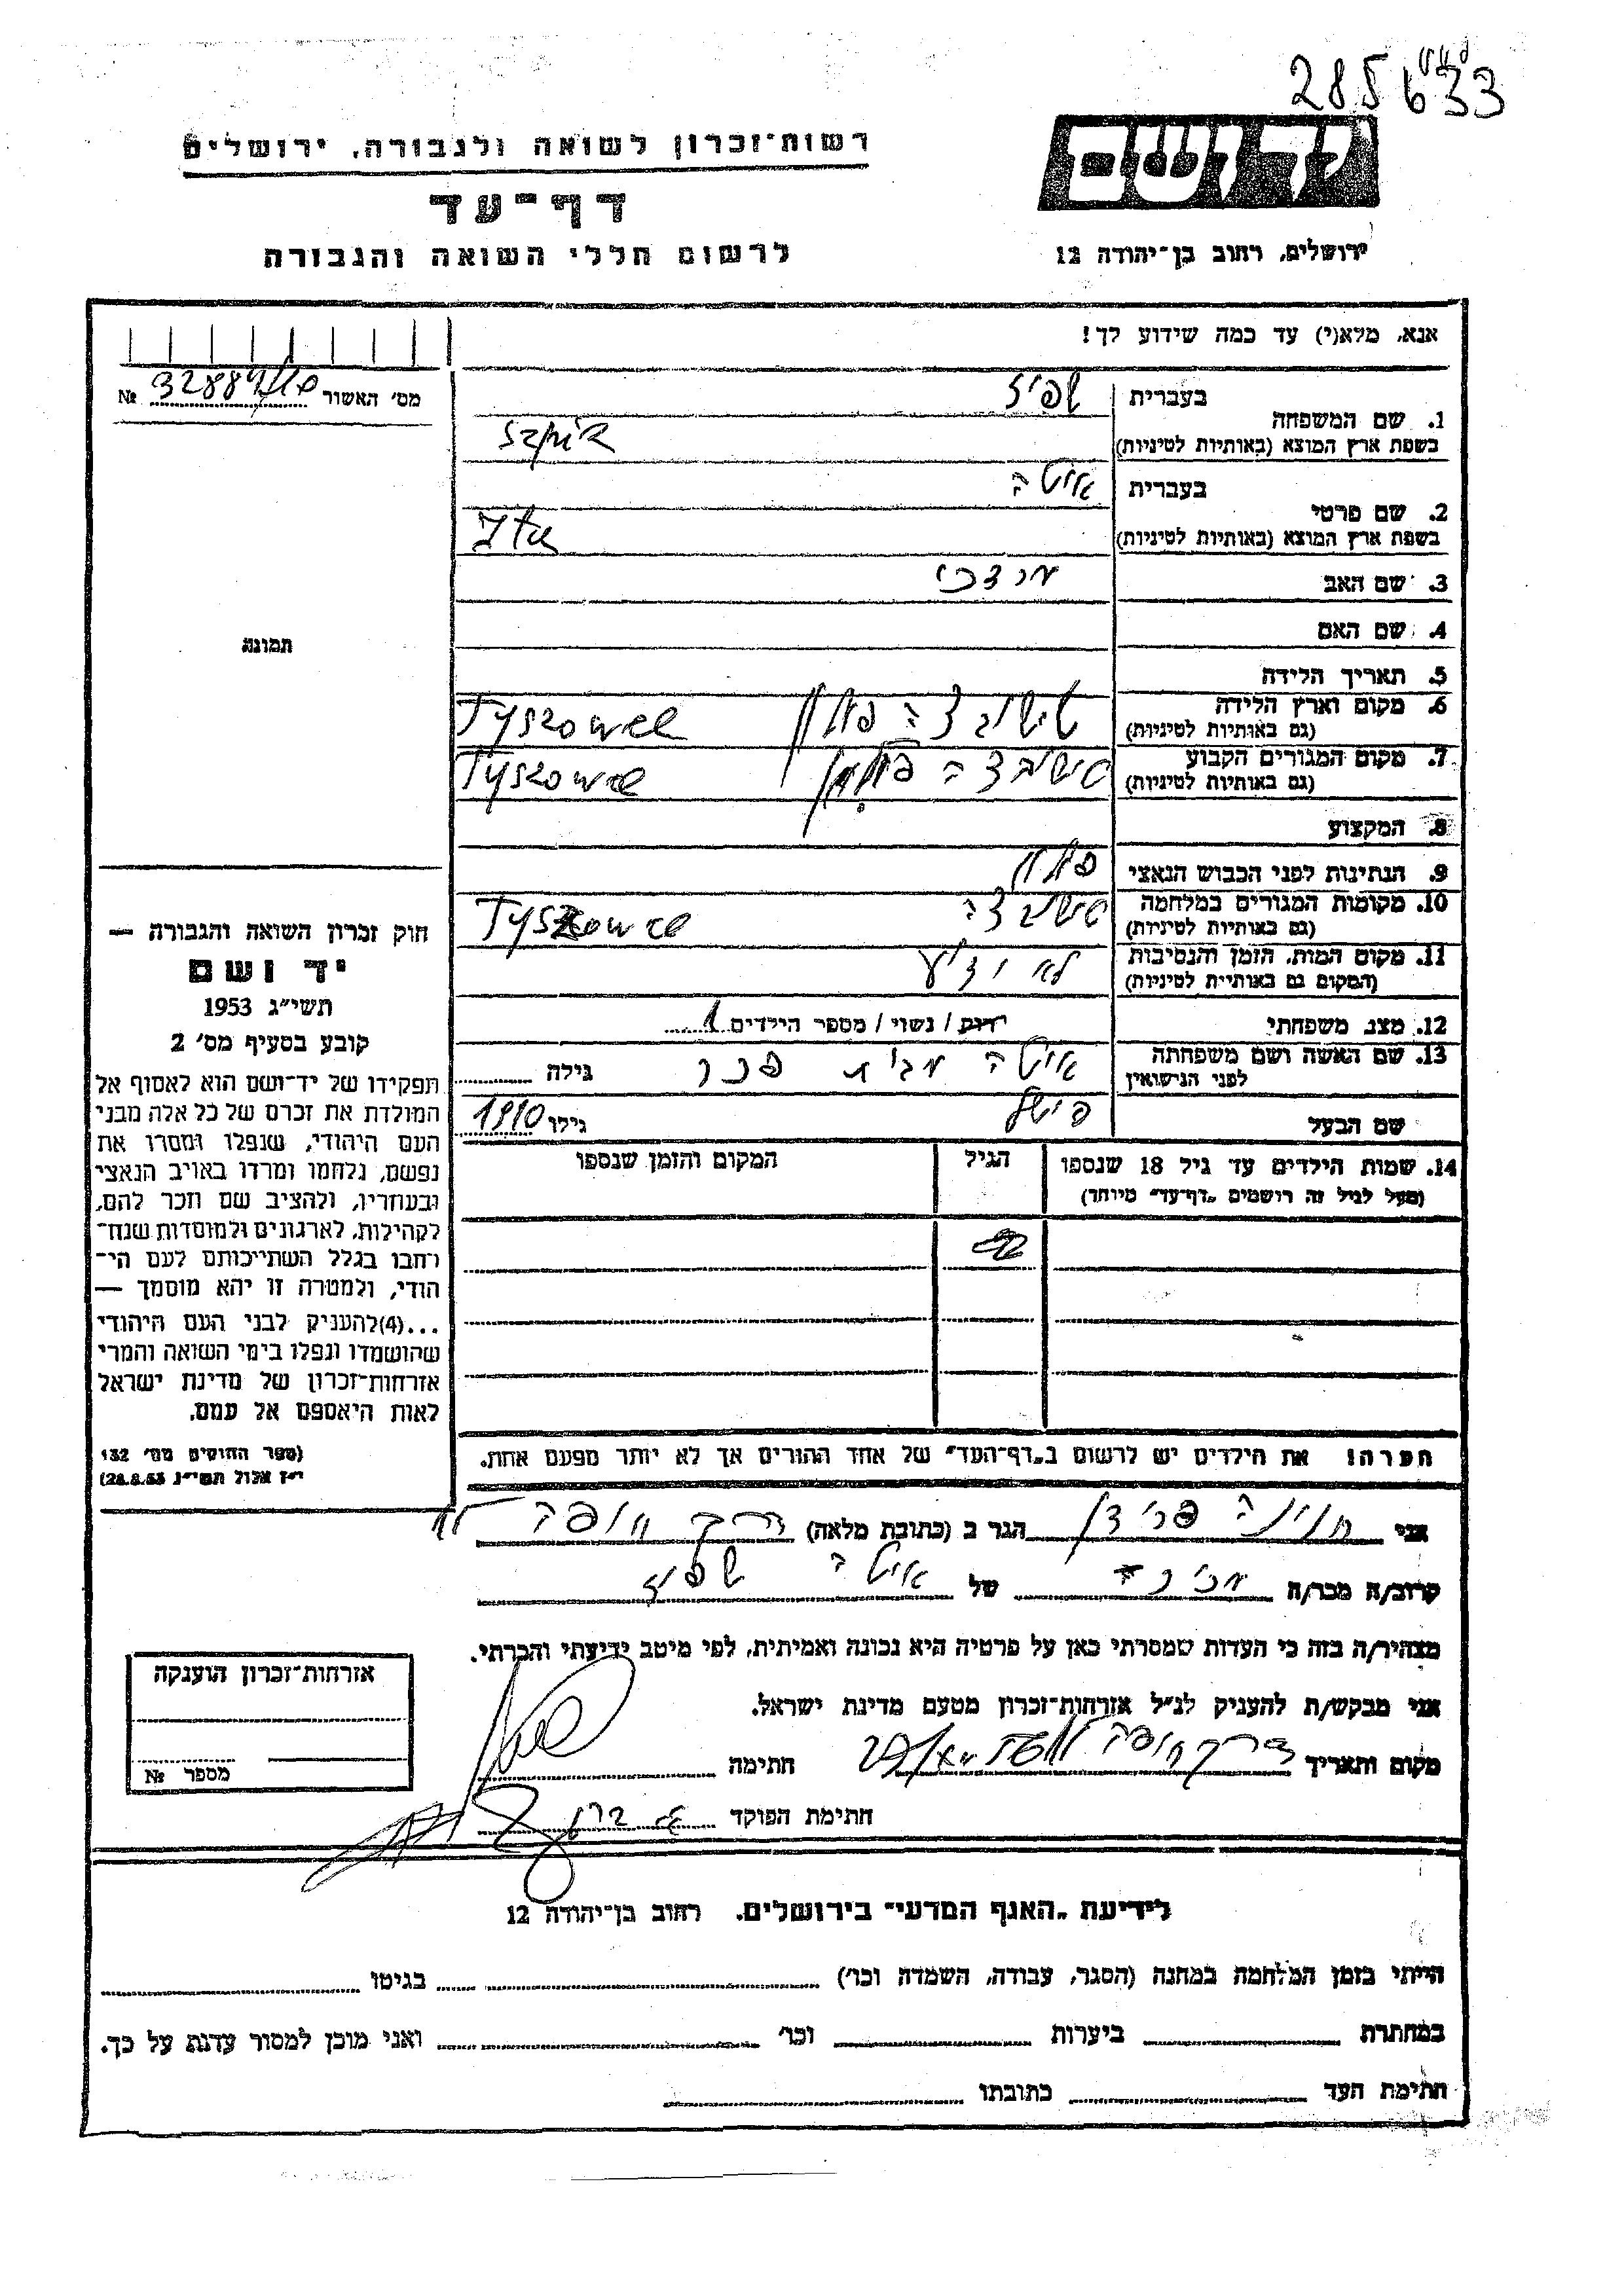 285633
רשות־זכרון לשואה ולגבורה, ירושלים
יד ושם
דף־עד
לרשום חללי השואה והגבורה
ירושלים, רחוב בן־יהודה 12
אנא, מלא(י) עד כמה שידוע לך!
מס׳ האשור №
תמונה
בעברית שפיז
1. שם המשפחה
בשפת ארץ המוצא (באותיות לטיניות)
בעברית איטה
2. שם פרטי
בשפת ארץ המוצא (באותיות לטיניות) Ita
3. שם האב מרדכי
4. שם האם
5. תאריך הלידה
6. מקום וארץ הלידה טישובצה פולין Tyszowce
(גם באותיות לטיניות)
7. מקום המגורים הקבוע טישובצה פולין Tyszowce
(גם באותיות לטיניות)
8. המקצוע
9. הנתינות לפני הכבוש הנאצי פולין
10. מקומות המגורים במלחמה טישובצה Tyszowce
(גם באותיות לטיניות)
11. מקום המות, הזמן והנסיבות לא ידוע
(המקום גם באותיות לטיניות)
12. מצב משפחתי רווק / נשוי / מספר הילדים 1
13. שם האשה ושם משפחתה איטה מבית פכר גילה
לפני הנישואין
שם הבעל פישל גילו 1910
14. שמות הילדים עד גיל 18 שנספו הגיל המקום והזמן שנספו
(מעל לגיל זה רושמים „דף־עד״ מיוחד)
הערה! את הילדים יש לרשום ב„דף־העד״ של אחד ההורים אך לא יותר מפעם אחת.
חוק זכרון השואה והגבורה —
יד ושם
תשי״ג 1953
קובע בסעיף מס׳ 2
תפקידו של יד־ושם הוא לאסוף אל
המולדת את זכרם של כל אלה מבני
העם היהודי, שנפלו ומסרו את
נפשם, נלחמו ומרדו באויב הנאצי
ובעוזריו, ולהציב שם וזכר להם,
לקהילות, לארגונים ולמוסדות שנח־
רבו בגלל השתייכותם לעם הי־
הודי, ולמטרה זו יהא מוסמך —
...(4)להעניק לבני העם היהודי
שהושמדו ונפלו בימי השואה והמרי
אזרחות־זכרון של מדינת ישראל
לאות היאספם אל עמם.
(ספר החוקים מס׳ 132
י״ז אלול תשי״ג 28.8.53)
אני חוינה פרידמן הגר ב (כתובת מלאה) דרך יפו
קרוב/ה מכר/ה של איטה שפיז
מצהיר/ה בזה כי העדות שמסרתי כאן על פרטיה היא נכונה ואמיתית, לפי מיטב ידיעתי והכרתי.
אני מבקש/ת להעניק לנ״ל אזרחות־זכרון מטעם מדינת ישראל.
מקום ותאריך חתימה
חתימת הפוקד
אזרחות־זכרון הוענקה
מספר №
לידיעת „האגף המדעי״ בירושלים, רחוב בן־יהודה 12
הייתי בזמן המלחמה במחנה (הסגר, עבודה, השמדה וכו׳) בגיטו
במחתרת ביערות וכו׳ ואני מוכן למסור עדות על כך.
חתימת העד כתובתו